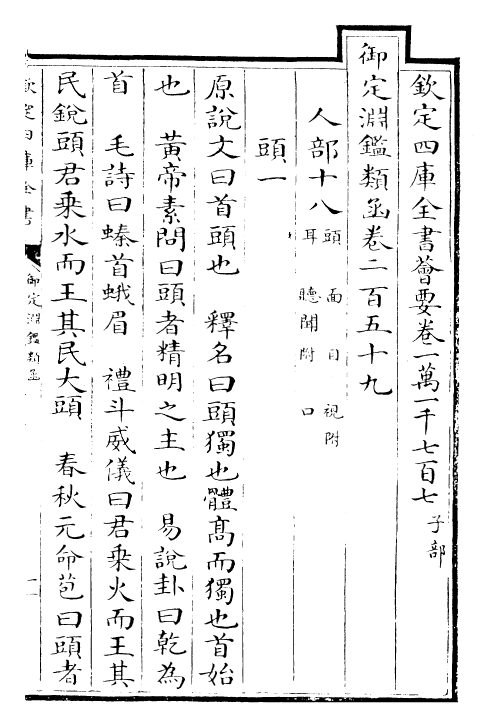 欽定四庫全書薈要卷一萬一千七百七 子部
御定淵鑑類函卷二百五十九
人部十八 頭 面 目 視附
耳 聽聞附 口
頭一
原說文曰首頭也 釋名曰頭獨也體髙而獨也首始
也 黃帝素問曰頭者精明之主也 易說卦曰乾為
首 毛詩曰螓首蛾眉 禮斗威儀曰君乗火而王其
民銳頭君乗水而王其民大頭 春秋元命苞曰頭者
欽定四庫全書
御定淵鑑類函
一